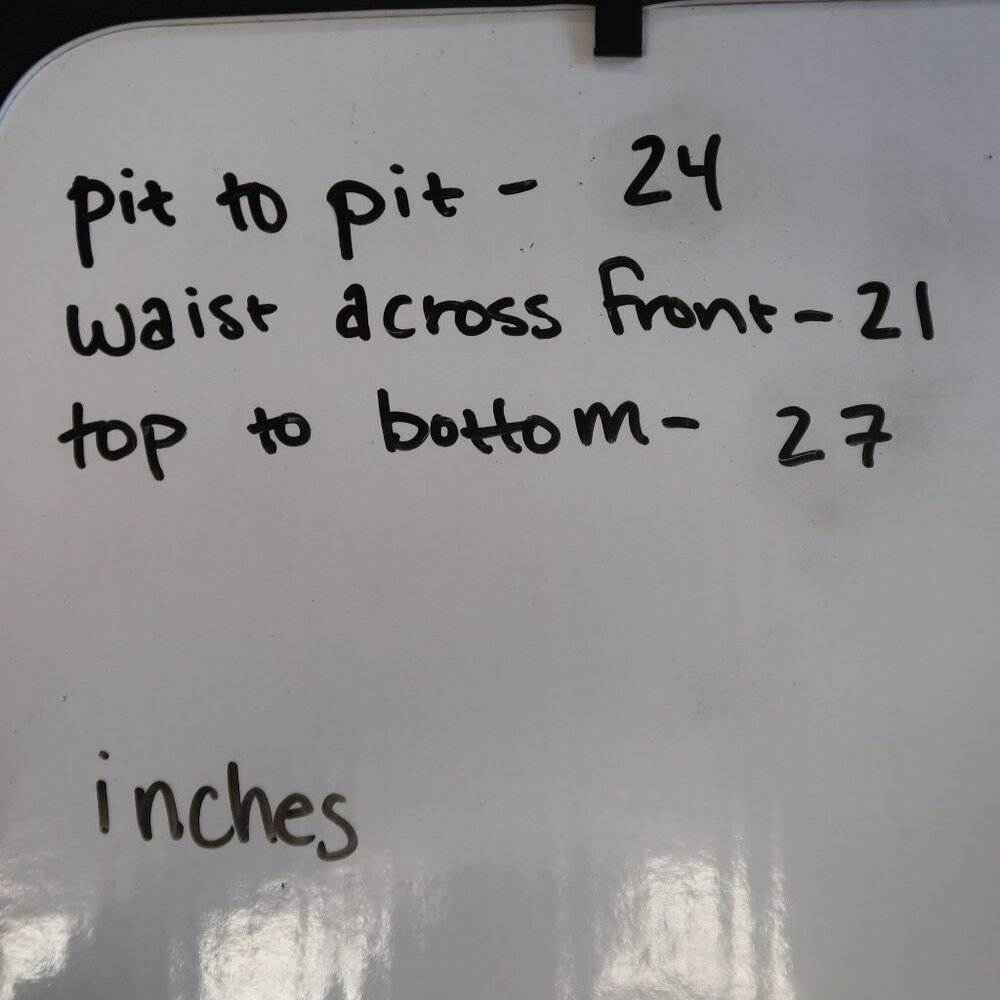 pit to pit - 24
waist across front - 21
top to bottom - 27
inches